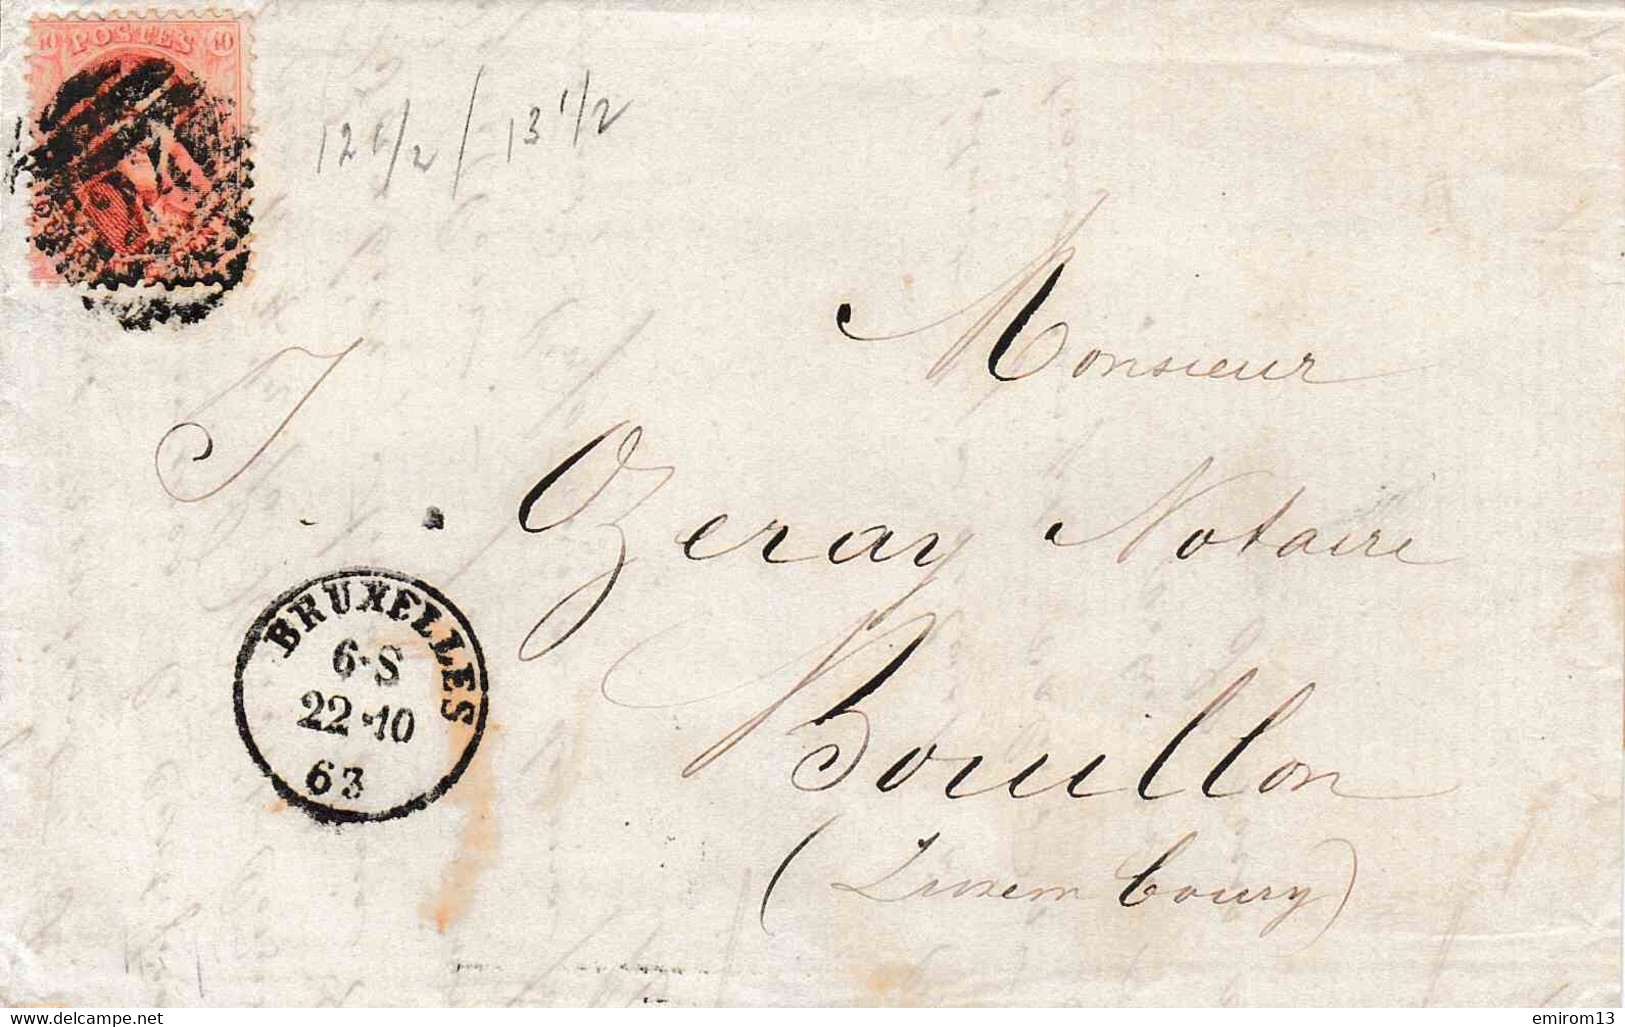 40 POSTES 40
24
12 1/2 / 13 1/2
Monsieur
J. Ozeray Notaire
Bouillon
(Luxembourg)
BRUXELLES
6·S
22·10
63
delcampe.net
emirom13